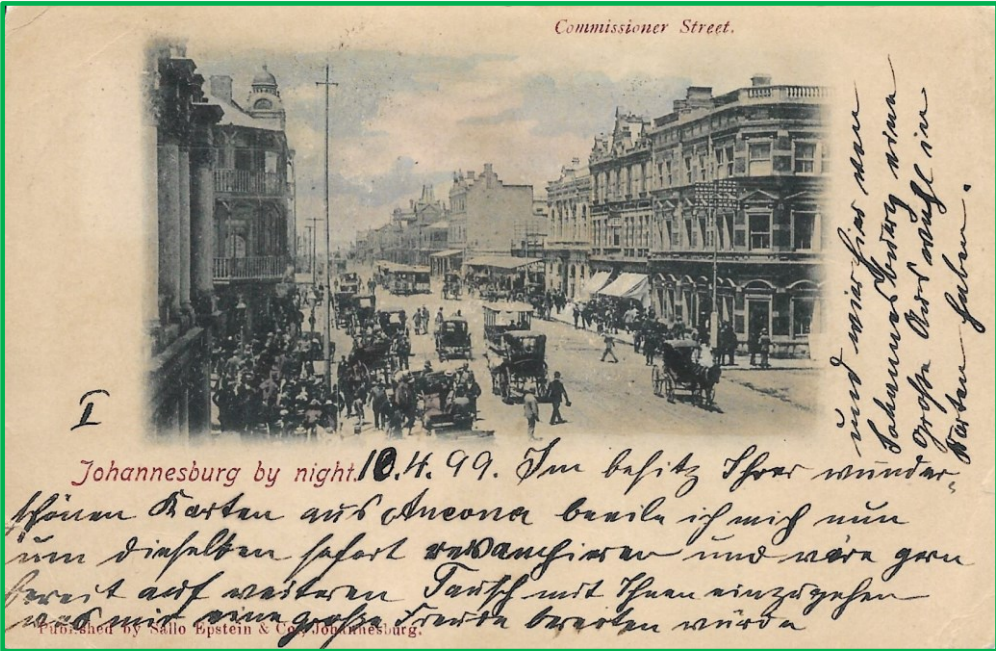 Commissioner Street.
I
Johannesburg by night. 10.4.99. Im besitz Ihrer wunder-
schönen Karten aus Ancona beeile ich mich nun
um dieselben sofort revanchieren und wäre gern
bereit auf weiteren Tausch mit Ihnen einzugehen
was mir eine große Freude bereiten würde
Published by Sallo Epstein & Co., Johannesburg.
und wir hier von
Johannesburg eine
große Auswahl in
Karten haben.